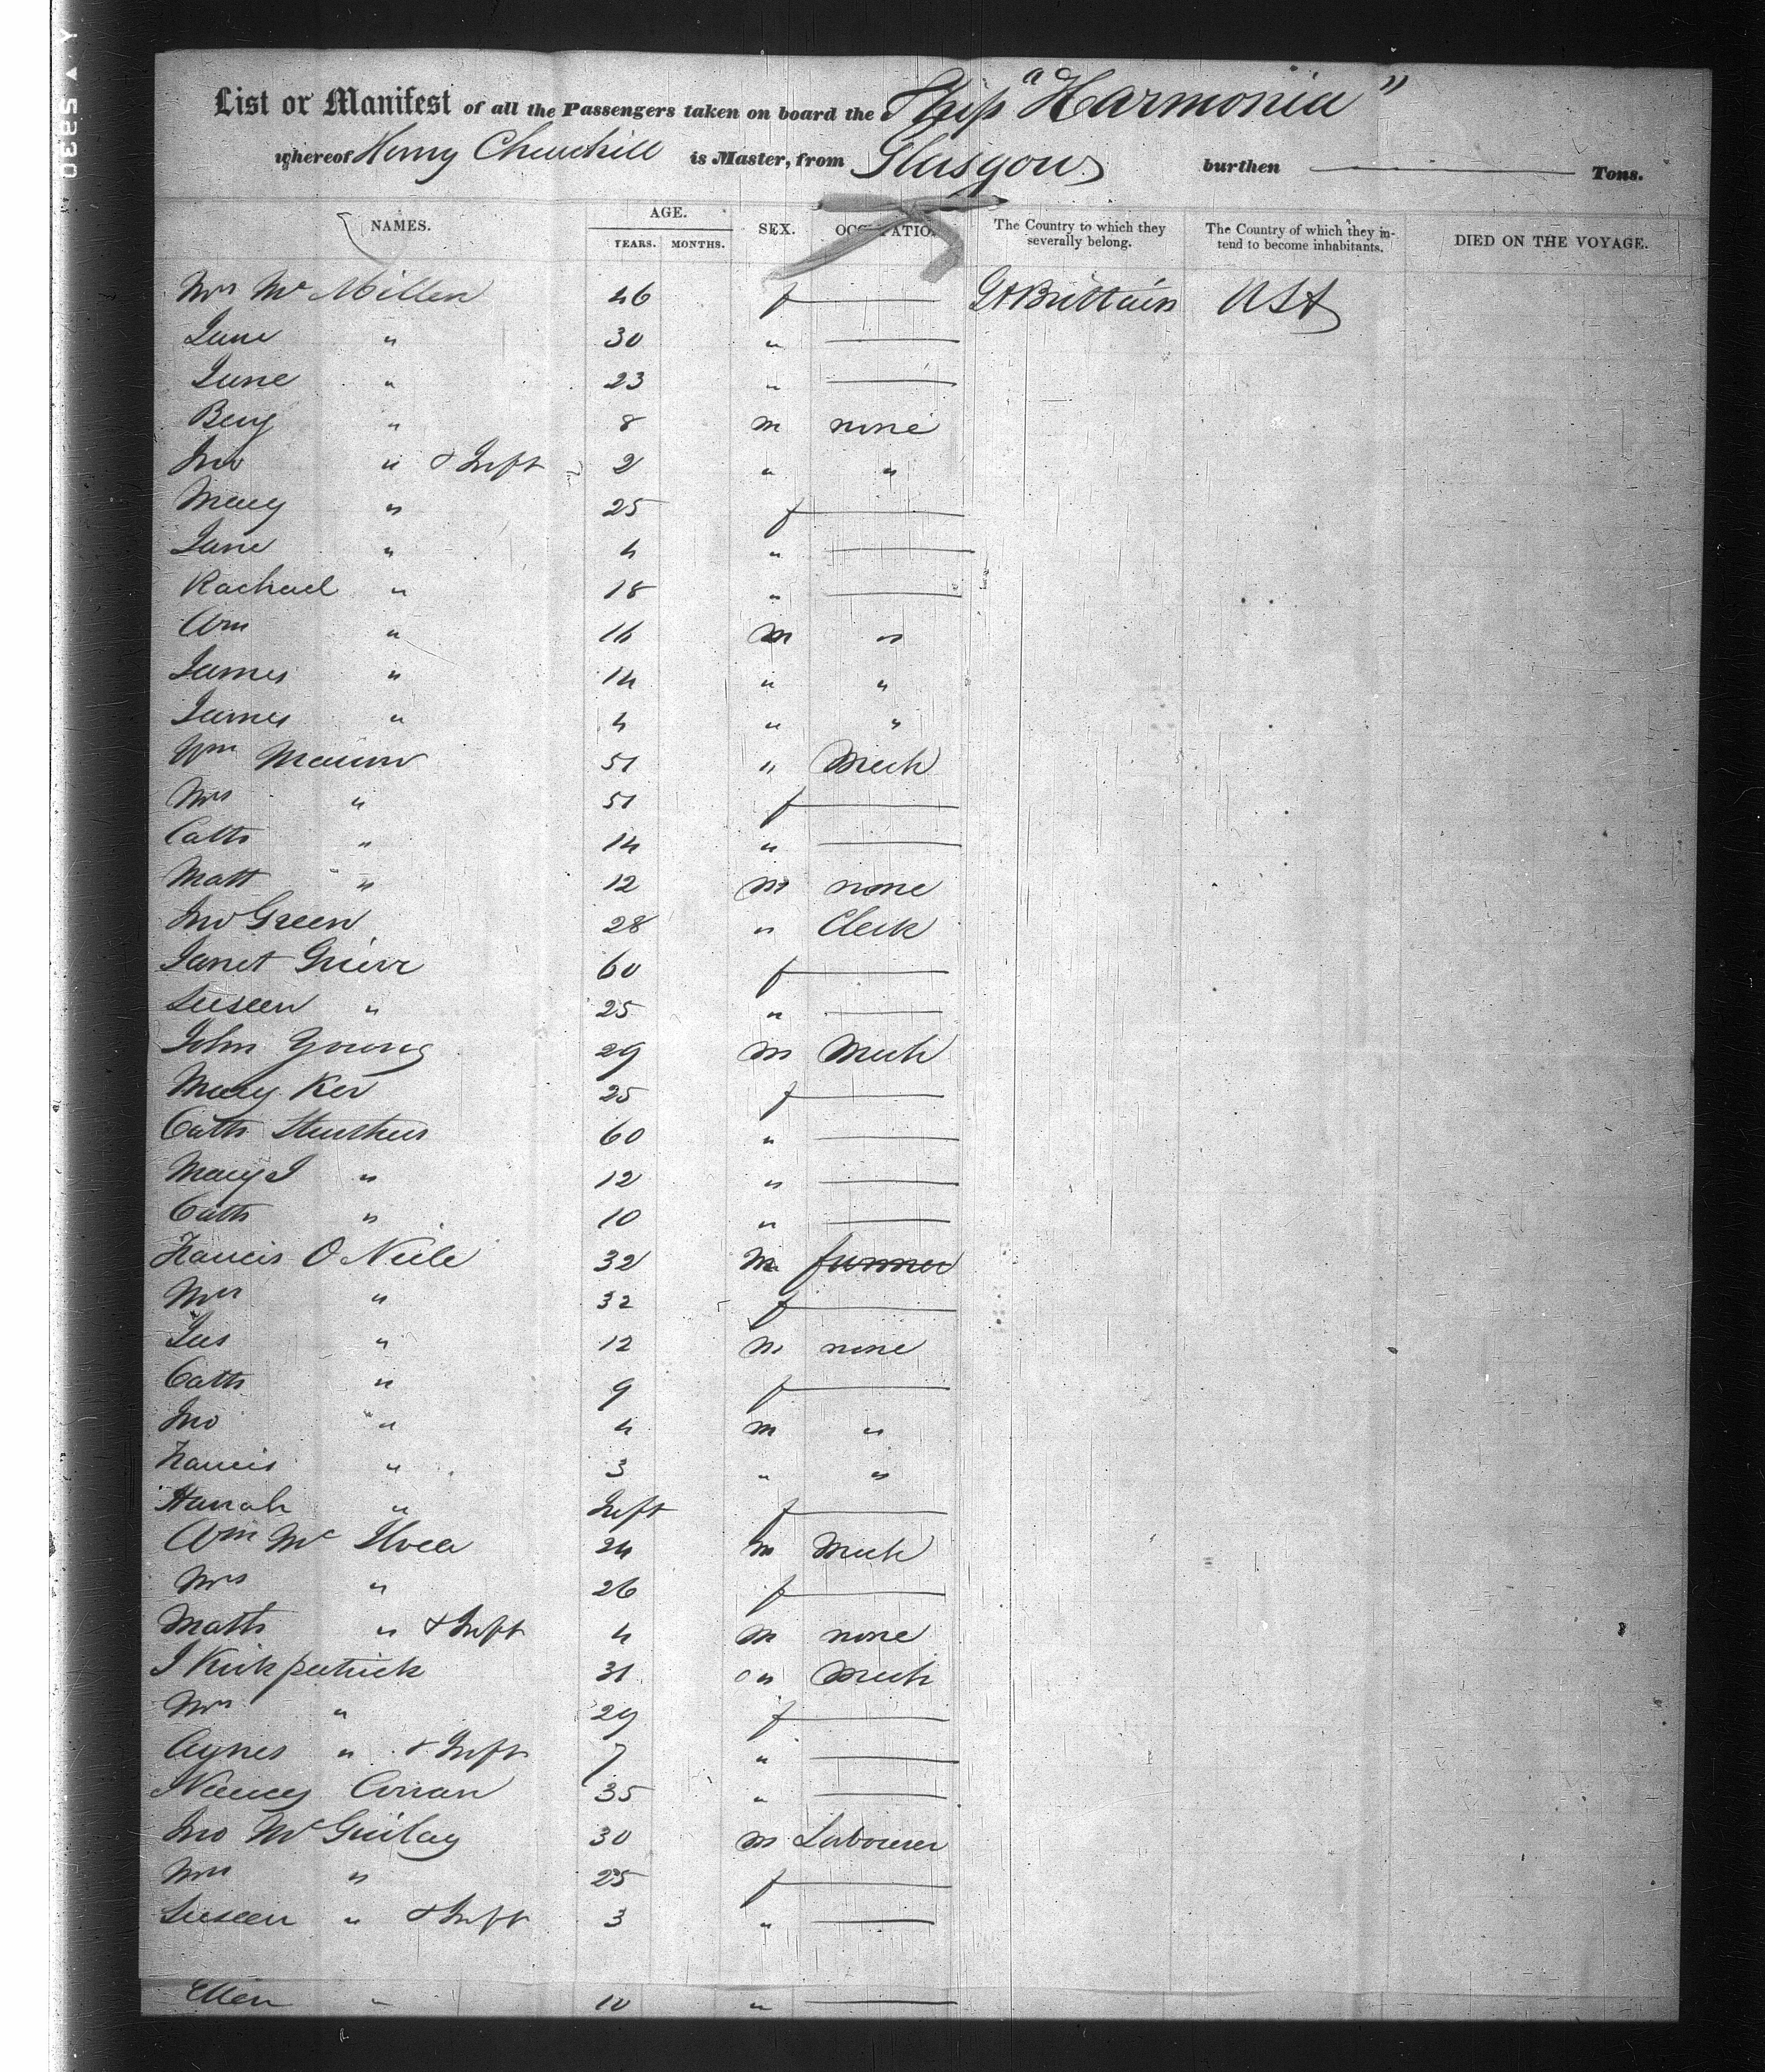 List or Manifest of all the Passengers taken on board the Ship "Harmonia"
whereof Henry Churchill is Master, from Glasgow burthen Tons.
NAMES. AGE. YEARS. MONTHS. SEX. OCCUPATION The Country to which they severally belong. The Country of which they intend to become inhabitants. DIED ON THE VOYAGE.
Mrs Mc Millen 46 f Gt Brittain USA
Jane " 30 "
Jane " 23 "
Benj " 8 m none
Jno " & Inft 2 " "
Mary " 25 f
Jane " 4 "
Rachael " 18 "
Wm " 16 m "
James " 14 " "
James " 4 " "
Wm 51 " Mech
Mrs " 51 f
Cath " 14 "
Matt " 12 m none
Jno Green 28 " Clerk
Janet Grierr 60 f
Susan " 25 "
John Young 29 m Mech
Mary Ker 25 f
Cath 60 "
Mary J " 12 "
Cath " 10 "
Francis O Neile 32 m farmer
Mrs " 32 f
Jas " 12 m none
Cath " 9 f
Jno " 4 m "
Francis " 3 " "
Hanah " Inft f
Wm Mc Ilvea 24 m Mech
Mrs " 26 f
Matth " & Inft 4 m none
J Kirkpatrick 31 " Mech
Mrs " 29 f
Agnes " & Inft 7 "
Nancy Curran 35 "
Jno Mc Guilay 30 m Labourer
Mrs " 25 f
Susan " & Inft 3 "
Ellen " 10 "